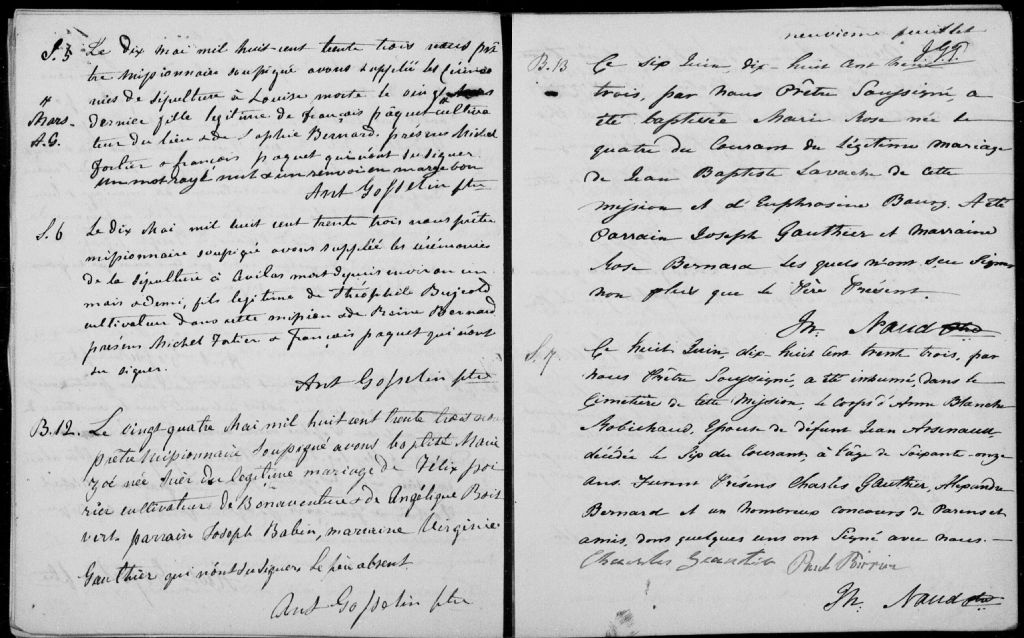 S. 5 Le dix Mai mil huit-cent trente trois nous prê
tre missionnaire soupigné avons supplée les cérémo
nies de sépulture à Louise morte le vingt
# Mars. dernier fille legitime de françois pâquet cultiva
A.G. teur du lieu & de Sophie Bernard. présens Michel
Fortier & françois paquet qui n'ont su signer
Un mot rayé nul & un renvoi en marge bon
Ant Gosselin ptre
S. 6 Le dix Mai mil huit cent trente trois nous prêtre
missionnaire soupigné avons supplée les cérémonies
de la sépulture à Avilas mort depuis environ un
mois & demi, fils legitime de Théophile Bujeold
cultivateur dans cette mission & de Reine Bernard
présens Michel Fortier & françois paquet qui n'ont
su signer.
Ant Gosselin ptre
B. 12. Le vingt quatre Mai mil huit cent trente trois
prêtre Missionnaire soupigné avons baptisé Marie
Zoé née hier du legitime mariage de Félix poi
rier cultivateur de Bonaventure & de Angélique Bois
vert. parrain Joseph Babin, marraine Virginie
Gauthier qui n'ont su signer. Le père absent.
Ant Gosselin ptre
neuvieme feuillet
B. 13 Ce six Juin, dix-huit cent trente
trois, par nous Prêtre Soussigné, a
été baptisée Marie Rose née le
quatre du Courant du Légitime mariage
de Jean Baptiste Lavache de cette
mission et d'Euphrosine Bourg. A été
Parrain Joseph Gauthier et Marraine
Rose Bernard les quels n'ont seu signer
non plus que le Père Présent.
Th. Naud ptre
S. 7 Ce huit Juin, dix huit cent trente trois, par
nous Prêtre Soussigné, a été inhumé, dans le
Cimetière de cette Mission, le corps d'Anne Blanche
Robichaud, Epouse de défunt Jean Arsenaud,
décédée le Six du Courant, à l'âge de Soixante-onze
ans. Furent Présens Charles Gauthier, Alexandre
Bernard et un nombreux concours de Parens et
amis, dont quelques uns ont Signé avec nous.—
Charles Gauthier Paul Poirier
Th. Naud ptre